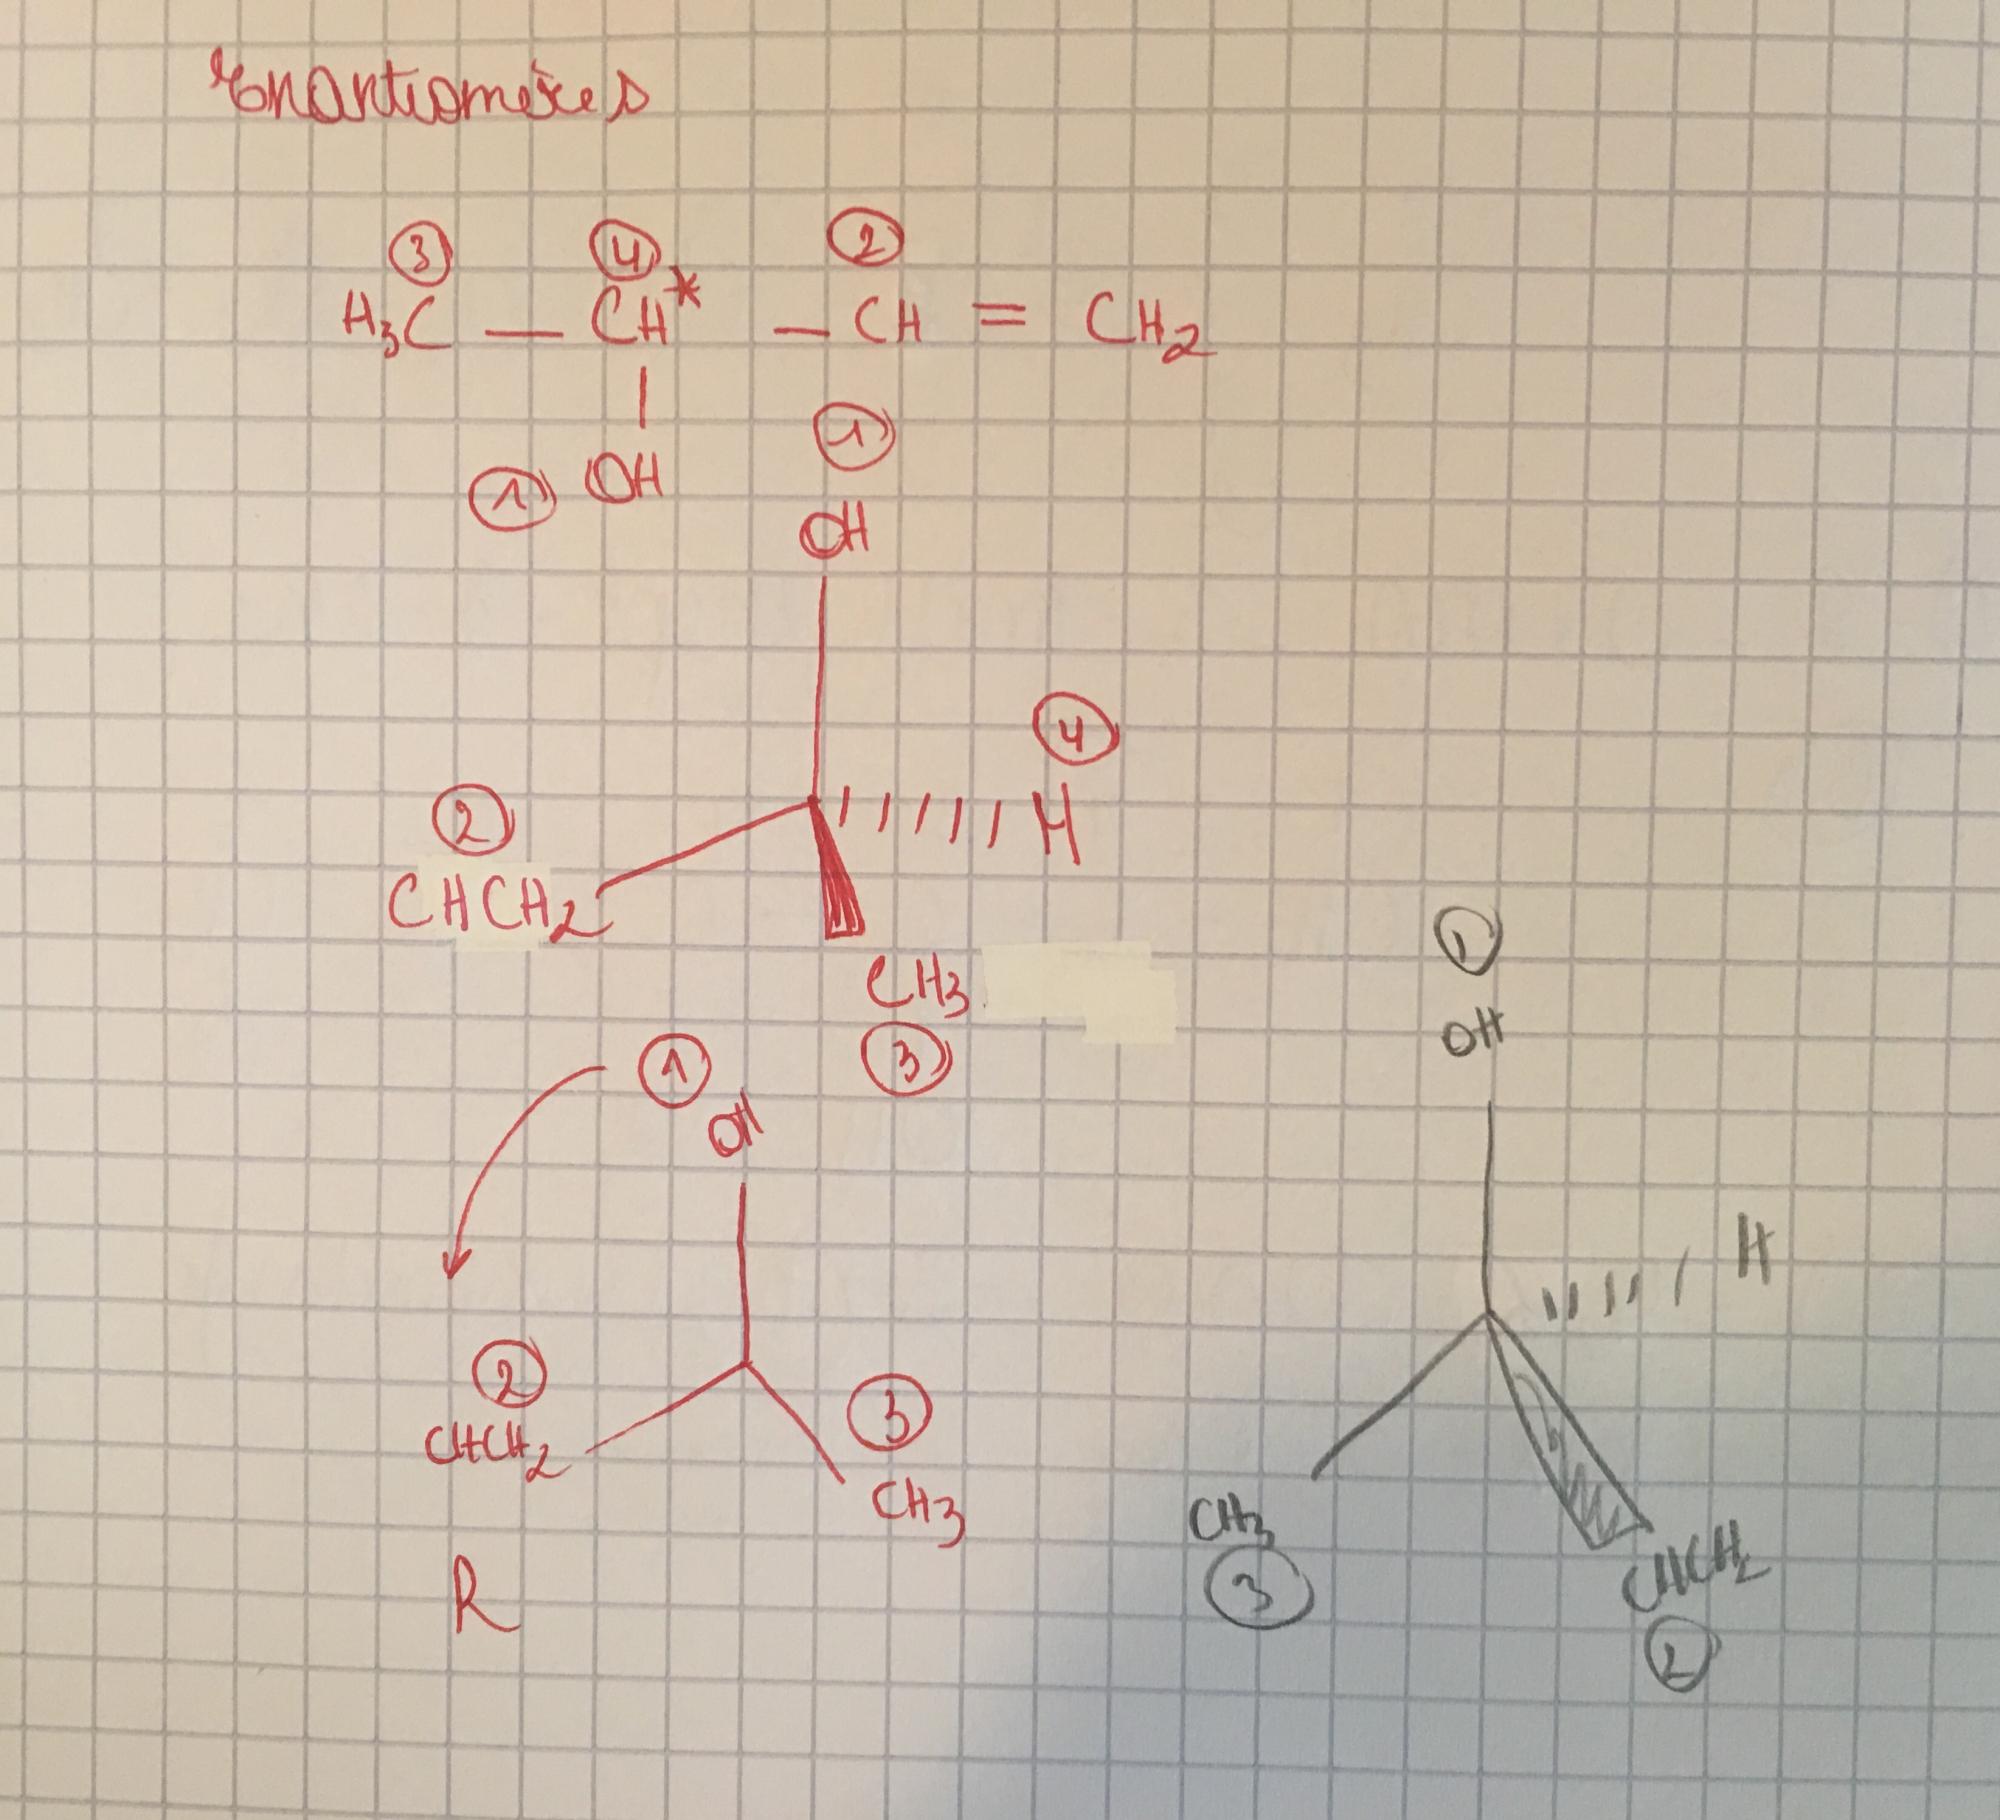 Enantiomères
③ ④ ②
H₃C — CH* — CH = CH₂
|
① OH
①
OH
④
H
②
CHCH₂
CH₃
③
①
OH
②
CHCH₂
③
CH₃
R
①
OH
H
CH₃
③
CHCH₂
②